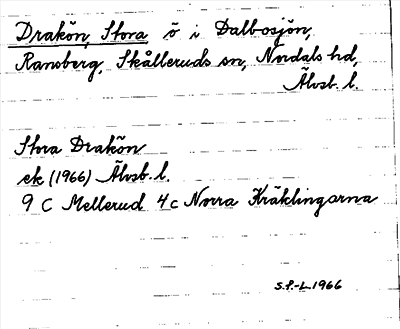 Drakön, Stora ö i Dalbosjön,
Ransberg, Skålleruds sn, Nordals hd,
Älvsb. l.
Stora Drakön
ek (1966) Älvsb. l.
9 C Mellerud 4c Norra Kräklingarna
S.F.-L. 1966